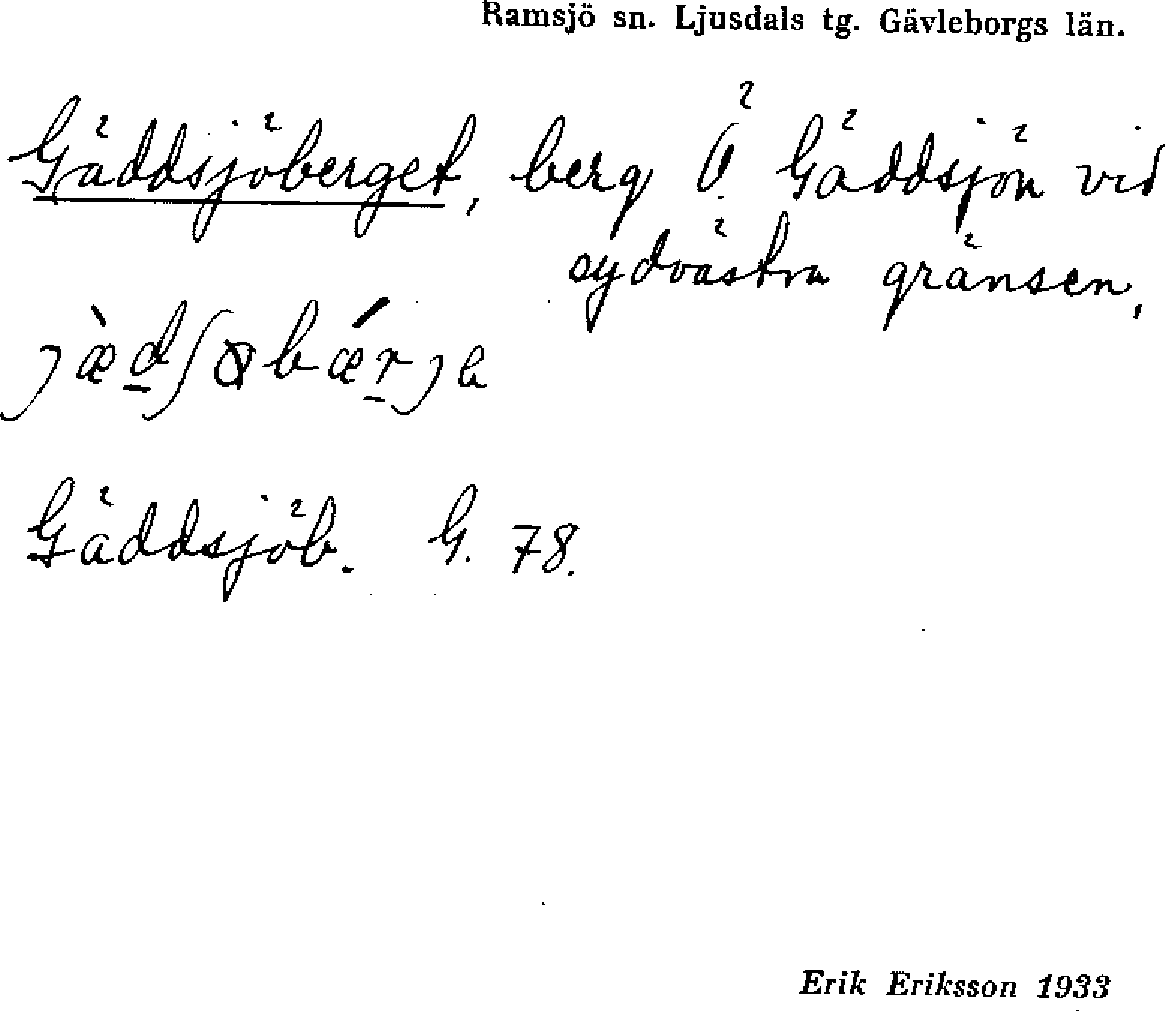 Ramsjö sn. Ljusdals tg. Gävleborgs län.
Gäddsjöberget, berg Ö. Gäddsjön vid
sydvästra gränsen,
Gäddsjöb. G. 78.
Erik Eriksson 1933